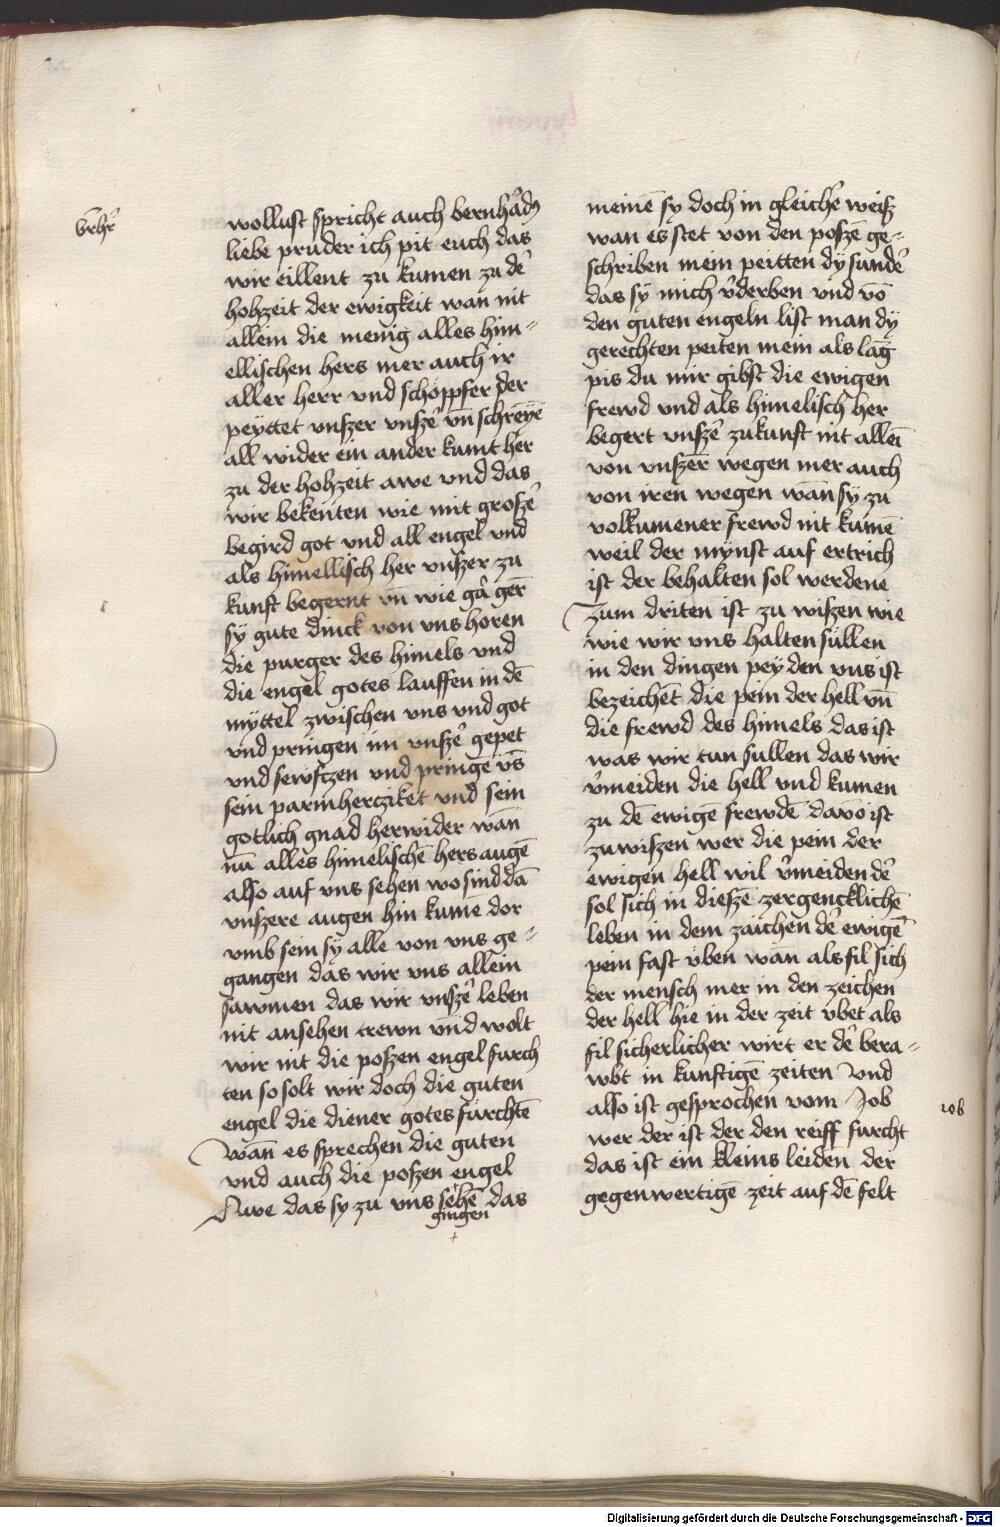 wollust spricht auch bernhãdꝰ
liebe pruder ich pit euch das
wir eillent zu kumen zu de᷑
hohzeit der ewigkeit wan nit
allein die menig alles him⸗
ellischen hers mer auch ir
aller herr vnd schöppfer der
peyttet vnszer vnsze᷑ vn̄ schreyē
all wider ein ander kumt her
zu der hohzeit awe vnd das
wir bekenten wie mit grosze᷑
begird got vnd all engel vnd
als himellisch her vnszer zu
kunft begernt vn̄ wie gã ger̄
sy gute dinck von vns horen
die purger des himels vnd
die engel gotes lauffen in dē
myttel zwischen vns vnd got
vnd pringen im vnsze᷑ gepet
vnd sewftzen vnd pringē vn̄s
sein parmhercziket vnd sein
gotlich gnad herwider wan̄
nū alles himelischē hers augē
also auf vns sehen wo sind dā
vnszere augen hin kume dor
vmb sein sy alle von vns ge⸗
gangen das wir vns allein
sawmen das wir vnsze᷑ leben
nit ansehen trewn vnd wolt
wir nit die poszen engel furch
ten so solt wir doch die guten
engel die diener gotes furchtē
Wan̄ es sprechen die guten
vnd auch die poszen engel
Awe das sy zu vns sehē das
gingen
meinē sy doch in gleiche᷑ weisz
wan es stet von den poszē ge⸗
schriben mein peitten dÿ sunde᷑
das sÿ mich v᷑derben vnd vō
den guten engeln list man dÿ
gerechten peiten mein als lāg
pis du mir gibst die ewigen
frewd vnd als himelisch her
begert vnsze᷑ zukunft nit alleī
von vnszer̄ wegen mer auch
von iren wegen wan̄ sÿ zu
volkumener frewd nit kumē
weil der mynst auf ertrich
ist der behalten sol werdene
Zum driten ist zu wiszen wie
wie wir vns halten süllen
in den dingen pey den vns ist
bezeichēt die pein der hell vn̄
die frewd des himels das ist
was wir tun sullen das wir
v᷑meiden die hell vnd kumen
zu dē ewigē frewdē davō ist
zuwiszen wer die pein der
ewigen hell wil v᷑meiden de᷑
sol sich in dieszē zergencklichē
leben in dem zaichen de᷑ ewigē
pein fast vben wan̄ als fil sich
der mensch mer in den zeichen
der hell hie in der zeit vbet als
fil sicherlicher wirt er de᷑ bera⸗
wbt in kunftigē zeiten Vnd
also ist gesprochen vom Job
wer der ist der den reiff furcht
das ist ein kleins leiden der
gegenwertigē zeit auf dē felt
iob
Digitalisierung gefördert durch die Deutsche Forschungsgemeinschaft - DFG